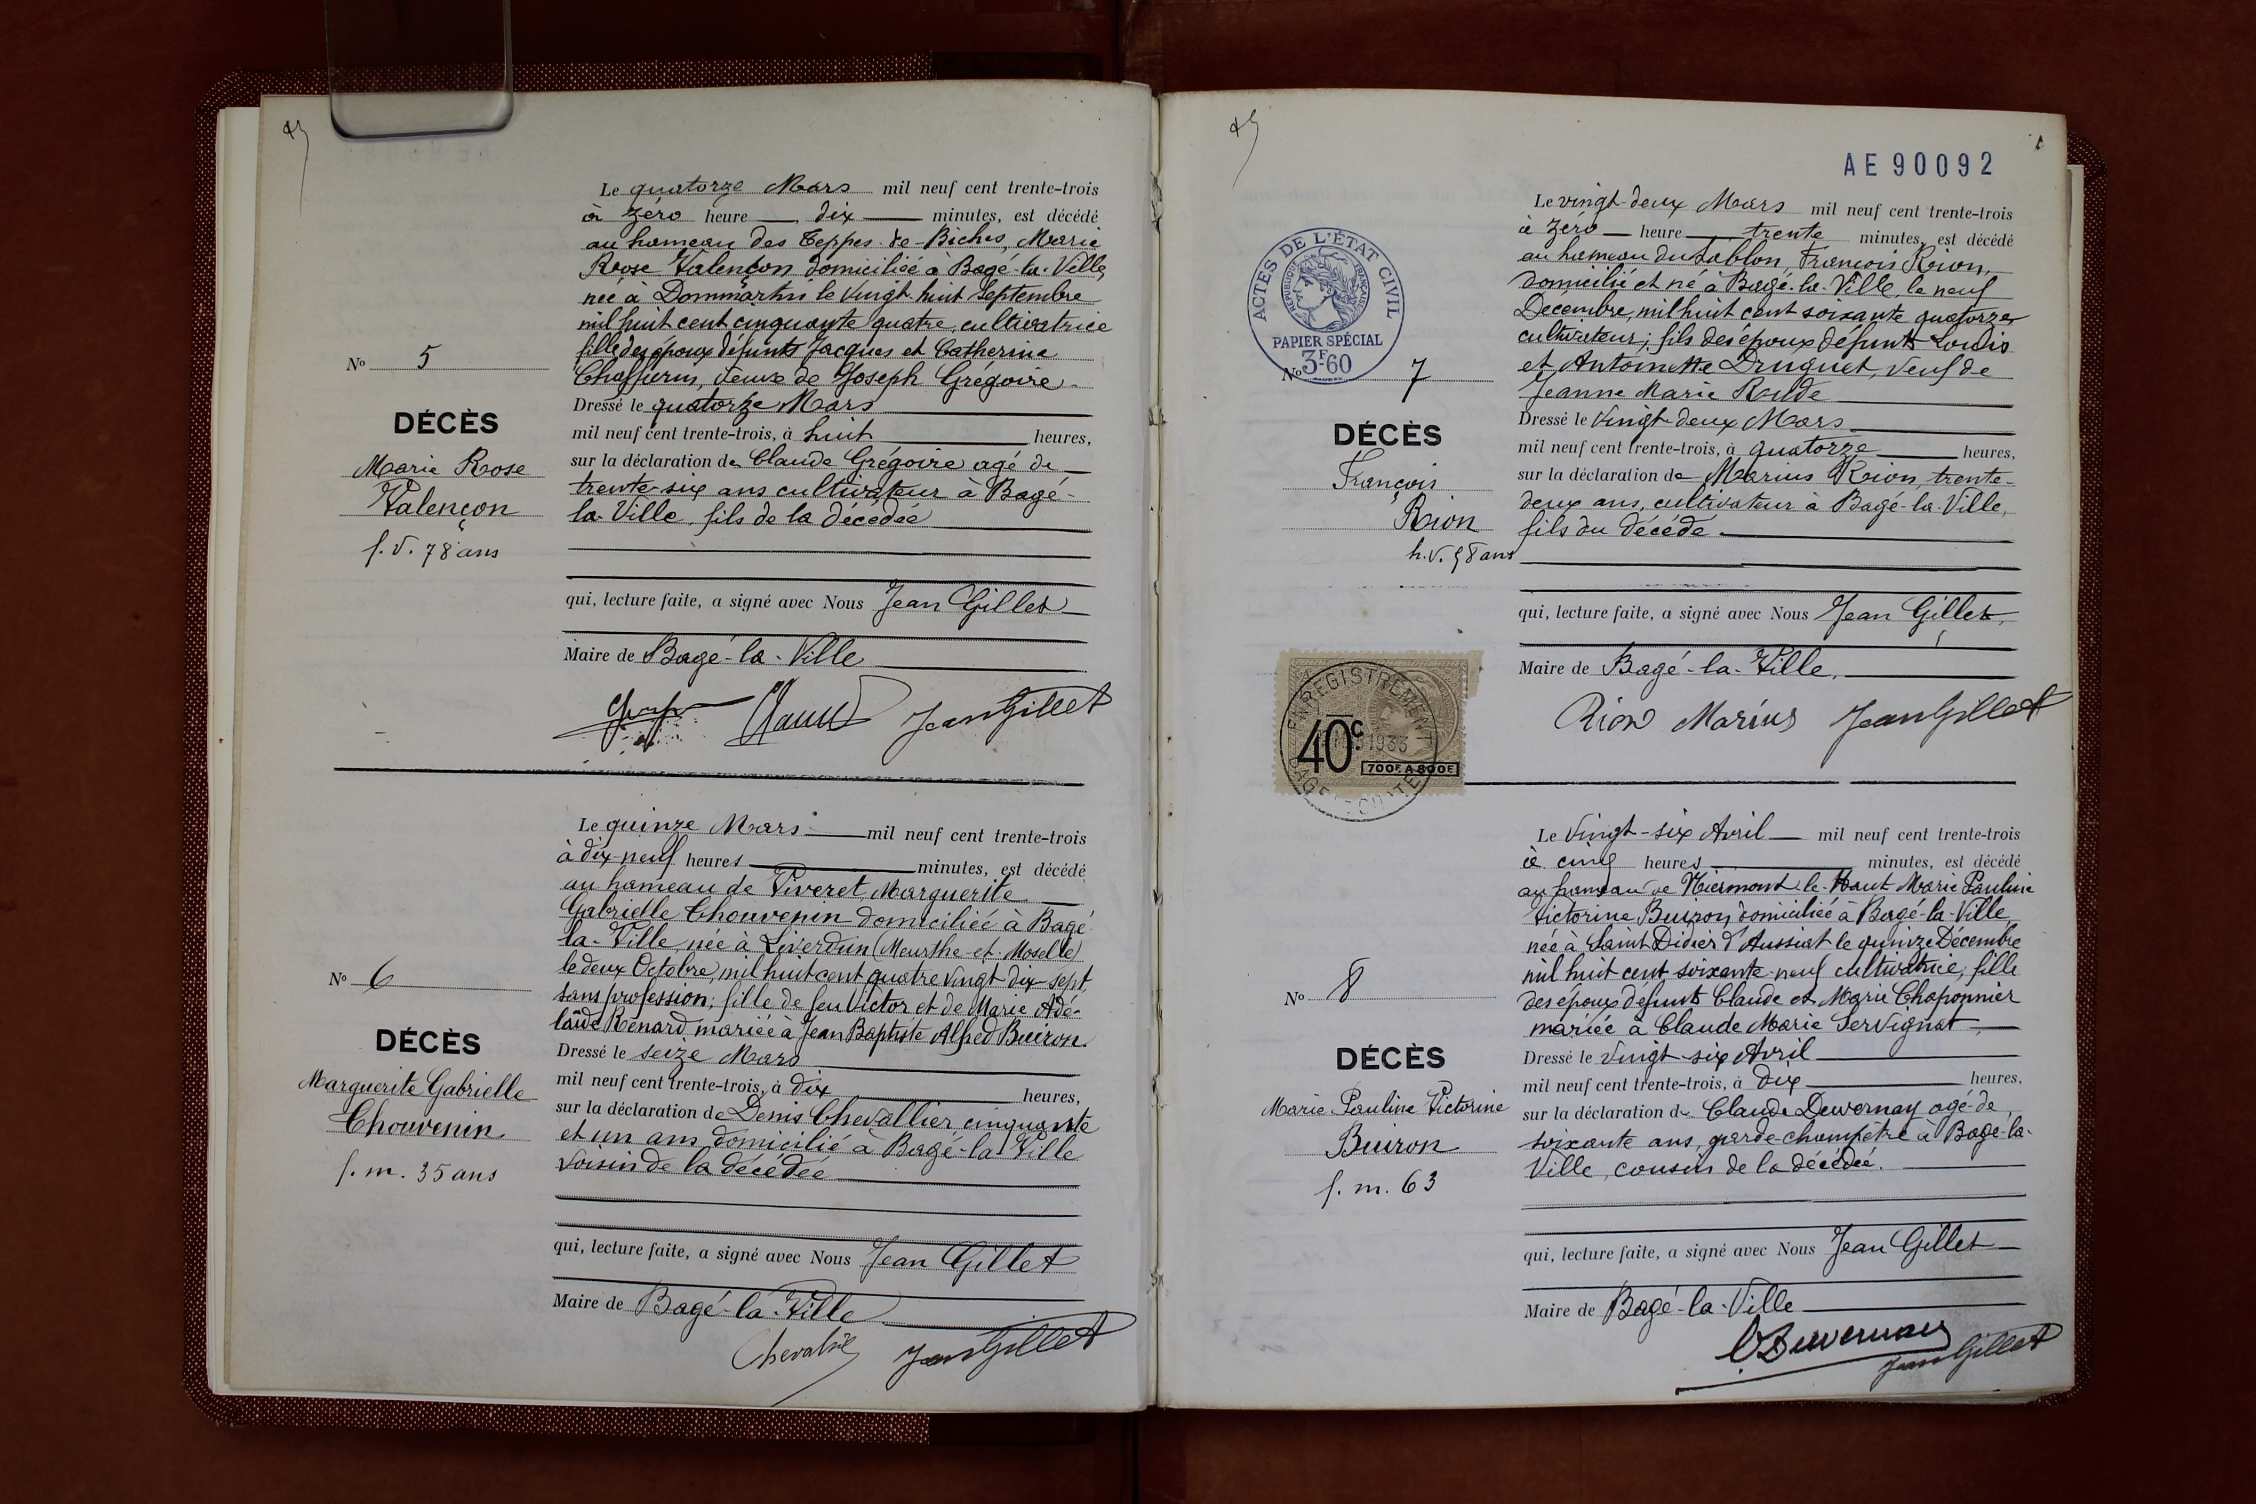 Le quatorze Mars mil neuf cent trente-trois
à zéro heure dix minutes, est décédé
au hameau des Teppes de Biches, Marie
Rose Valençon domiciliée à Bagé-la-Ville,
née à Dommartin le vingt huit Septembre
mil huit cent cinquante quatre, cultivatrice
fille des époux défunts Jacques et Catherine
Chaffurin, veuve de Joseph Grégoire
Dressé le quatorze Mars
mil neuf cent trente-trois, à huit heures,
sur la déclaration de Claude Grégoire agé de
trente-six ans cultivateur à Bagé-
la-Ville, fils de la décédée
qui, lecture faite, a signé avec Nous Jean Gillet
Maire de Bagé-la-Ville
Jean Gillet
No 5
DÉCÈS
Marie Rose
Valençon
f. v. 78 ans
Le quinze Mars mil neuf cent trente-trois
à dix-neuf heures minutes, est décédé
au hameau de Piveret, Marguerite
Gabrielle Chouvenin domiciliée à Bagé-
la-Ville, née à Liverdun (Meurthe et Moselle)
le deux Octobre, mil huit cent quatre vingt dix sept,
sans profession; fille de feu Victor et de Marie Adé-
laïde Renard mariée à Jean Baptiste Alfred Buiron.
Dressé le seize Mars
mil neuf cent trente-trois, à dix heures,
sur la déclaration de Denis Chevallier, cinquante
et un ans, domicilié à Bagé-la-Ville
voisin de la décédée
qui, lecture faite, a signé avec Nous Jean Gillet
Maire de Bagé-la-Ville
Jean Gillet
No 6
DÉCÈS
Marguerite Gabrielle
Chouvenin
f. m. 35 ans
AE 90092
Le vingt-deux Mars mil neuf cent trente-trois
à zéro heure trente minutes, est décédé
au hameau du Sablon, François Rion,
domicilié et né à Bagé-la-Ville, le neuf
Décembre, mil huit cent soixante quatorze,
cultivateur; fils des époux défunts Louis
et Antoinette Druguet, veuf de
Jeanne Marie Rude
Dressé le vingt-deux Mars
mil neuf cent trente-trois, à quatorze heures,
sur la déclaration de Marius Rion, trente-
deux ans, cultivateur à Bagé-la-Ville,
fils du décédé
qui, lecture faite, a signé avec Nous Jean Gillet,
Maire de Bagé-la-Ville,
Rion Marius Jean Gillet
ACTES DE L'ÉTAT CIVIL
RÉPUBLIQUE FRANÇAISE
PAPIER SPÉCIAL
3F-60
No 7
DÉCÈS
François
Rion
h. v. 58 ans
ENREGISTREMENT
40c 1933
700F A 800F
Le vingt-six Avril mil neuf cent trente-trois
à cinq heures minutes, est décédé
au hameau de Niermont-le-Haut Marie Pauline
Victorine Buiron, domiciliée à Bagé-la-Ville,
née à Saint Didier d'Aussiat le quinze Décembre
mil huit cent soixante-neuf cultivatrice, fille
des époux défunts Claude et Marie Chaponnier
mariée à Claude Marie Servignat
Dressé le vingt-six Avril
mil neuf cent trente-trois, à dix heures,
sur la déclaration de Claude Duvernay agé de
soixante ans, garde-champêtre à Bagé-la-
Ville, cousin de la décédée.
qui, lecture faite, a signé avec Nous Jean Gillet
Maire de Bagé-la-Ville
C Duvernay
Jean Gillet
No 8
DÉCÈS
Marie Pauline Victorine
Buiron
f. m. 63